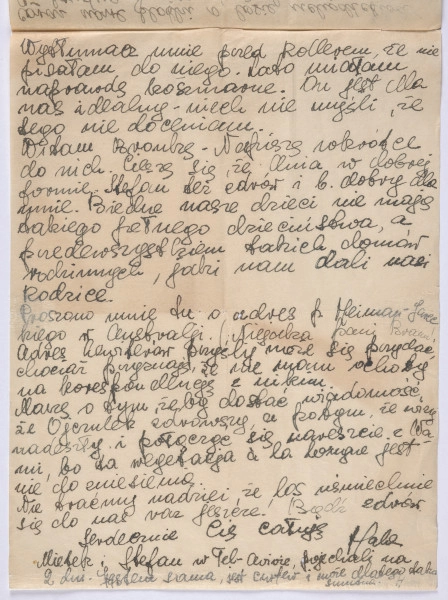 Wytłumacz mnie przed Pollerem, że nie
pisałam do niego. Lato miałam
naprawdę koszmarne. On jest dla
nas idealny - niech nie myśli, że
tego nie doceniam.
Witam Bronkę - Napiszę wkrótce
do nich. Cieszę się, że Ania w dobrej
formie. Stefan też zdrów i b. dobry dla
mnie. Biedne nasze dzieci nie mają
takiego pełnego dzieciństwa, a
przedewszystkiem takich domów
rodzinnych, jaki nam dali nasi
Rodzice.
Proszono mnie tu o adres p. Heiman
kiego w Australji.
Adres przyślij może się przydać
chociaż przyznaję, że nie mam ochoty
na korespondencję z nikim.
Marzę o tym żeby dostać wiadomość,
że Ojczulek zdrowszy, a potym, że wizy
nadeszły i połączyć się nareszcie z Wa-
mi, bo ta wegetacja à la longue jest
nie do zniesienia.
Nie traćmy nadziei że los uśmiechnie
się do nas raz jeszcze. Bądź zdrów
Serdecznie Cię całuję
Hala
Mietek i Stefan w Tel-Avivie, pojechali na
2 dni. Jestem sama, jest i może dlatego taka
smutna.